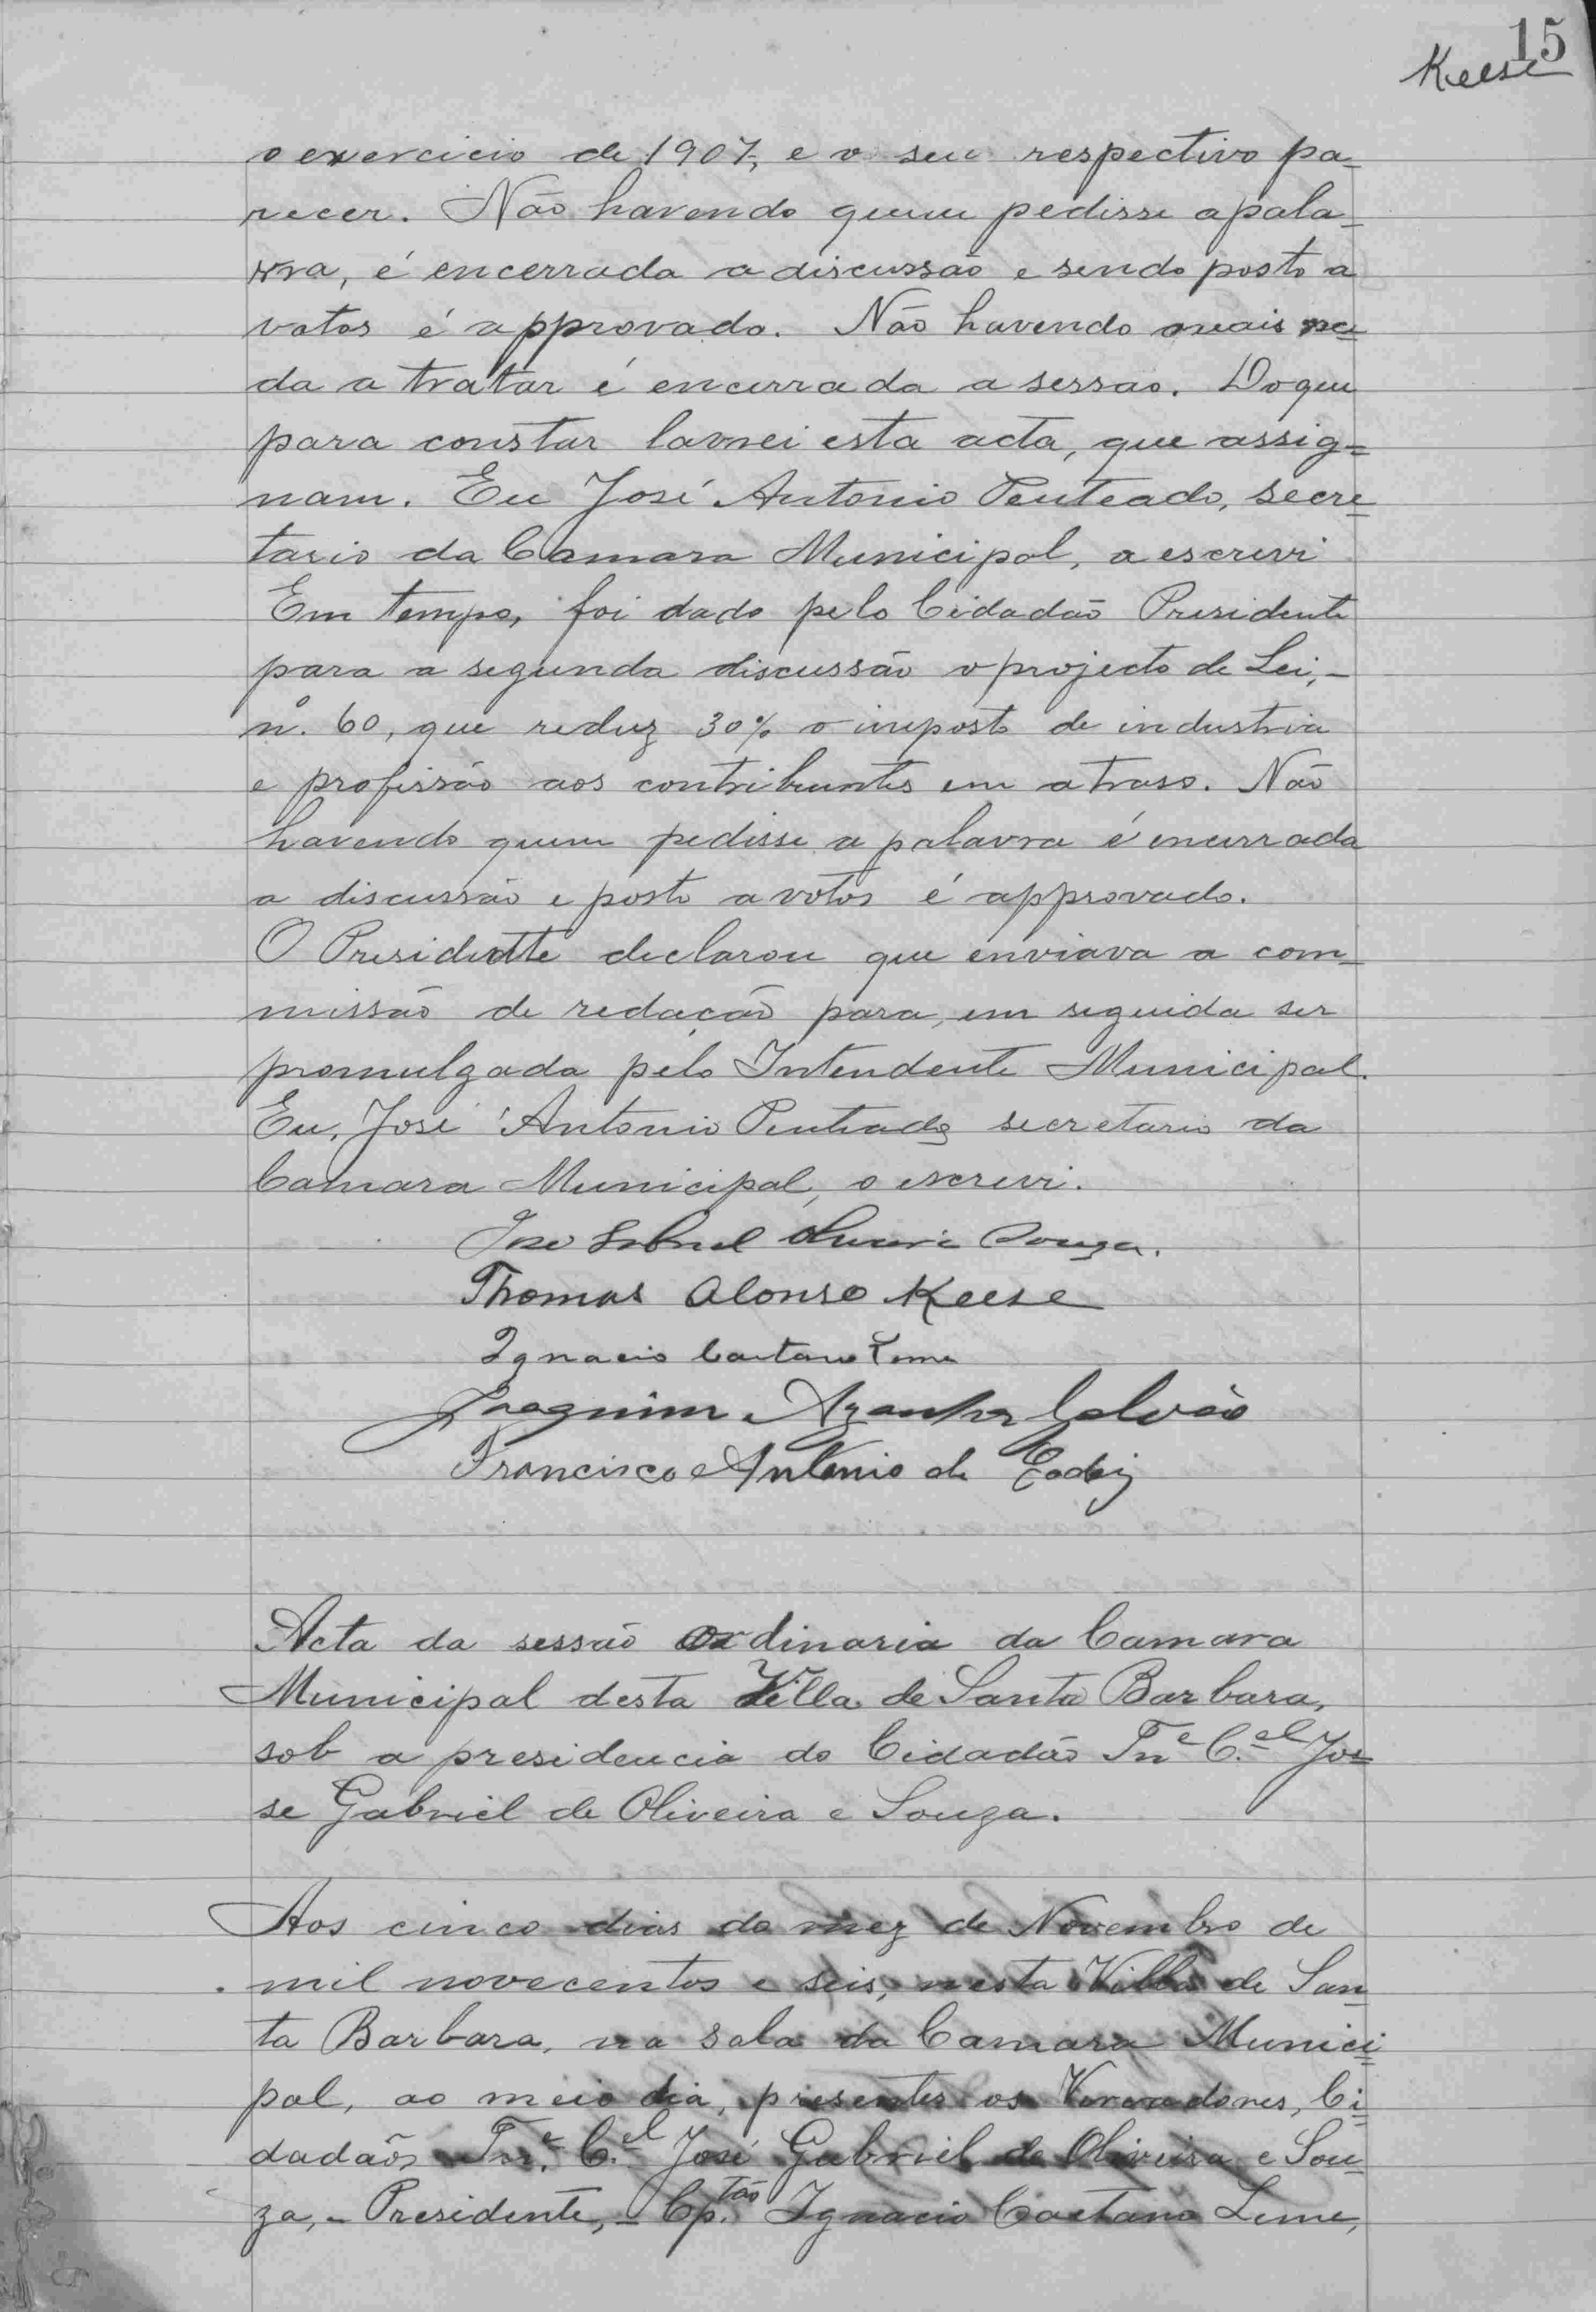 15
Keese
o exercicio de 1907, e o seu respectivo pa-
recer. Não havendo quem pedisse a pala-
vra, é encerrada a discussão e sendo posto a
votos é approvado. Não havendo mais na-
da a tratar é encerrada a sessao. Do que
para constar lavrei esta acta, que assig=
nam. Eu José Antonio Penteado, secre=
tario da Camara Municipal, a escrevi
Em tempo, foi dado pelo Cidadão Presidente
para a segunda discussão o projecto de Lei, -
nº. 60, que reduz 30% o imposto de industria
e profissão aos contribuintes em atraso. Não
havendo quem pedisse a palavra é encerrada
a discussão e posto a votos é approvado.
O Presidente declarou que enviava a com-
missão de redacção para, em seguida ser
promulgada pelo Intendente Municipal.
Eu, José Antonio Penteado secretario da
Camara Municipal, o escrevi.
José Gabriel Oliveira Souza.
Thomas Alonso Keese
Ignacio Caetano Leme
Joaquim Azanha Galvão
Francisco Antonio de Godoy
Acta da sessão ordinaria da Camara
Municipal desta Villa de Santa Barbara,
sob a presidencia do Cidadão Tnᵉ C.ᵉˡ Jo=
se Gabriel de Oliveira e Souza.
Aos cinco dias do mez de Novembro de
mil novecentos e seis, nesta Villa de San
ta Barbara, na sala da Camara Munici=
pal, ao meio dia, presentes os Vereadores, Ci=
dadãos Tn.ᵉ C.ᵉˡ José Gabriel de Oliveira e Sou=
za, - Presidente, - Cp.ᵗᵃ̃ᵒ Ignacio Caetano Leme,